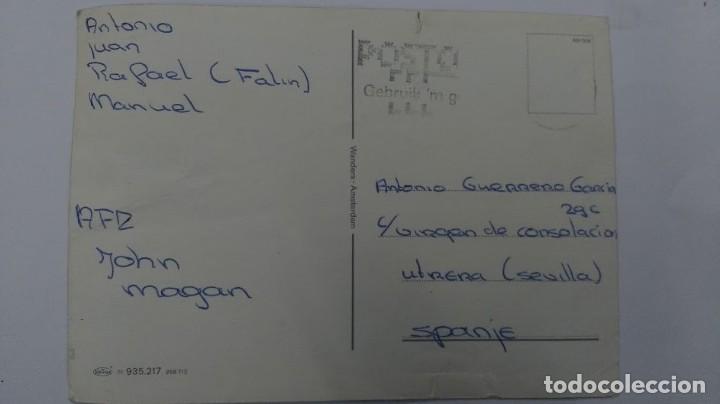 Antonio
Juan
Rafael (Falin)
Manuel
AFZ
John
magan
935.217
Wanders - Amsterdam
POSTC
Gebruik 'm g
Antonio Guerrero Garcia
29c
c/virgen de consolacion
utrera (sevilla)
spanje
todocoleccion.net